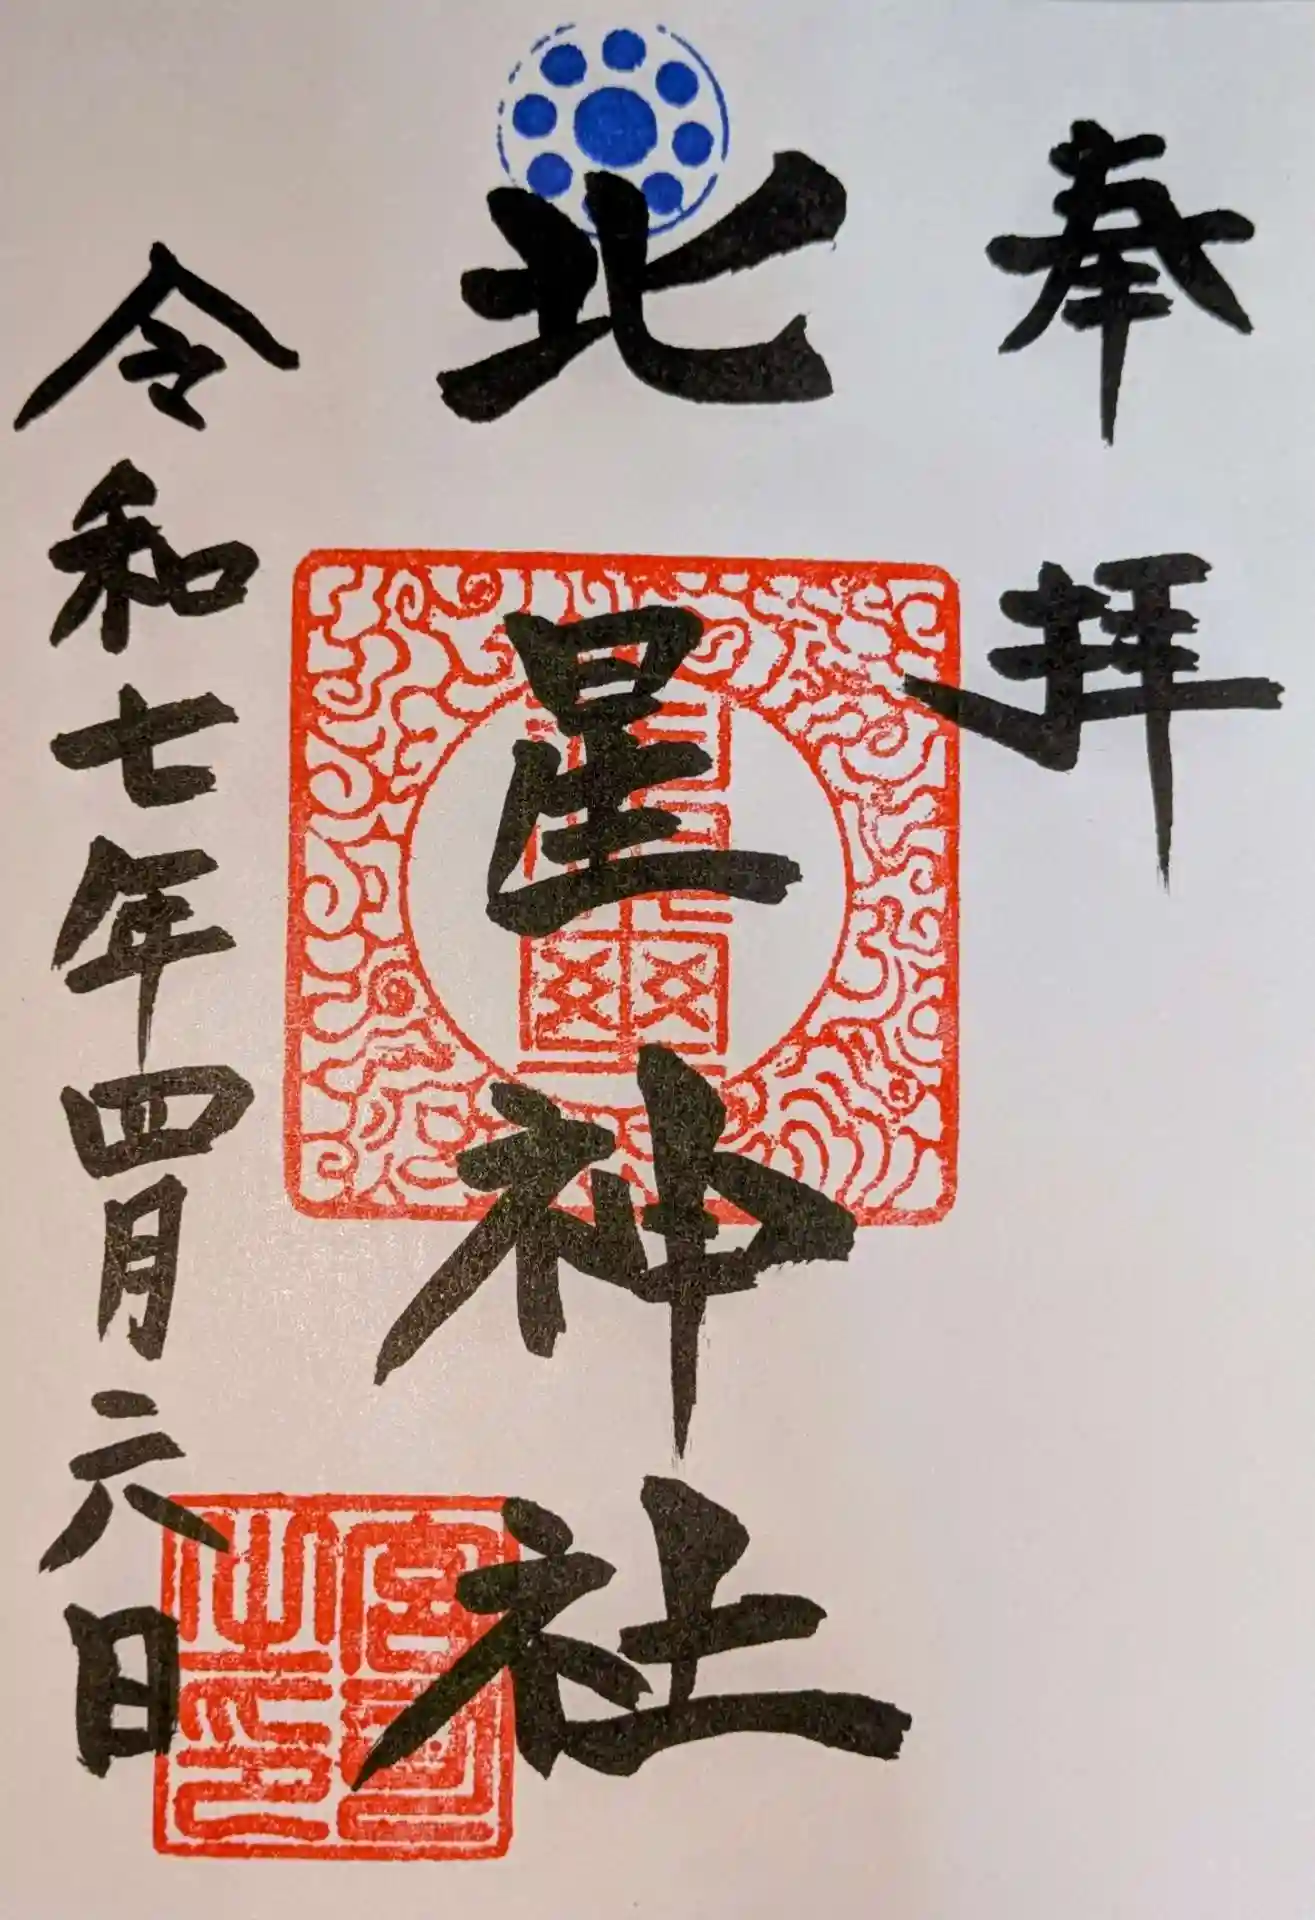 奉拝
北星神社
令和七年四月六日